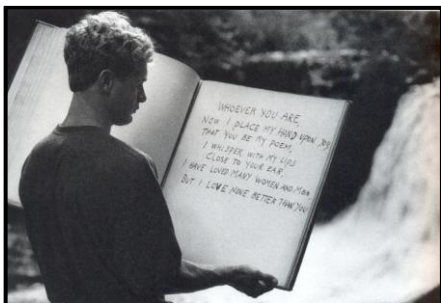 WHOEVER YOU ARE,
NOW I PLACE MY HAND UPON YOU
THAT YOU BE MY POEM,
I WHISPER WITH MY LIPS
CLOSE TO YOUR EAR,
I HAVE LOVED MANY WOMEN AND MEN,
BUT I LOVE NONE BETTER THAN YOU